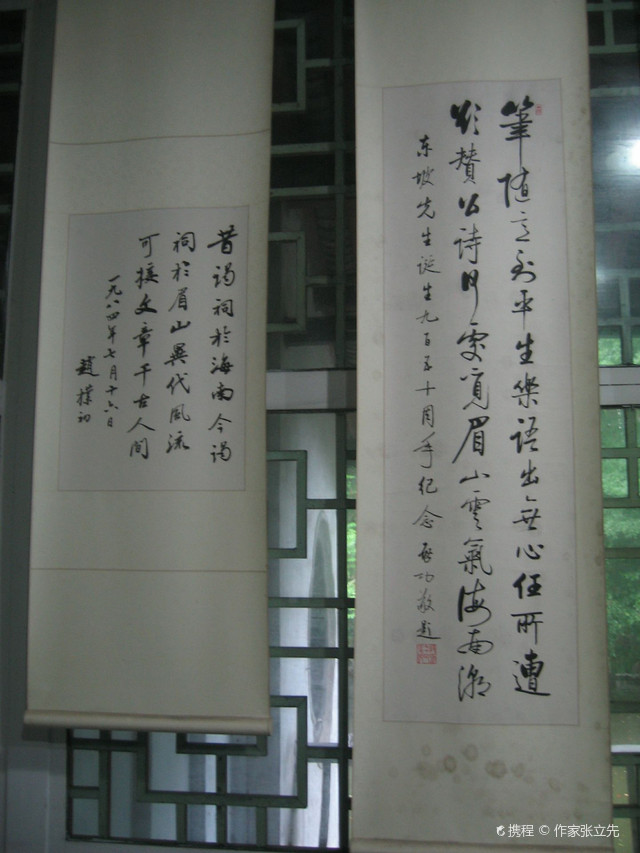 筆随意到平生樂語出無心任所遭
欲贊公詩何處覓眉山雲氣海南潮
东坡先生诞生九百五十周年纪念 启功敬题
昔謁祠於海南今謁
祠於眉山異代風流
可接文章千古人間
一九八四年七月十六日
趙樸初
携程 © 作家张立先